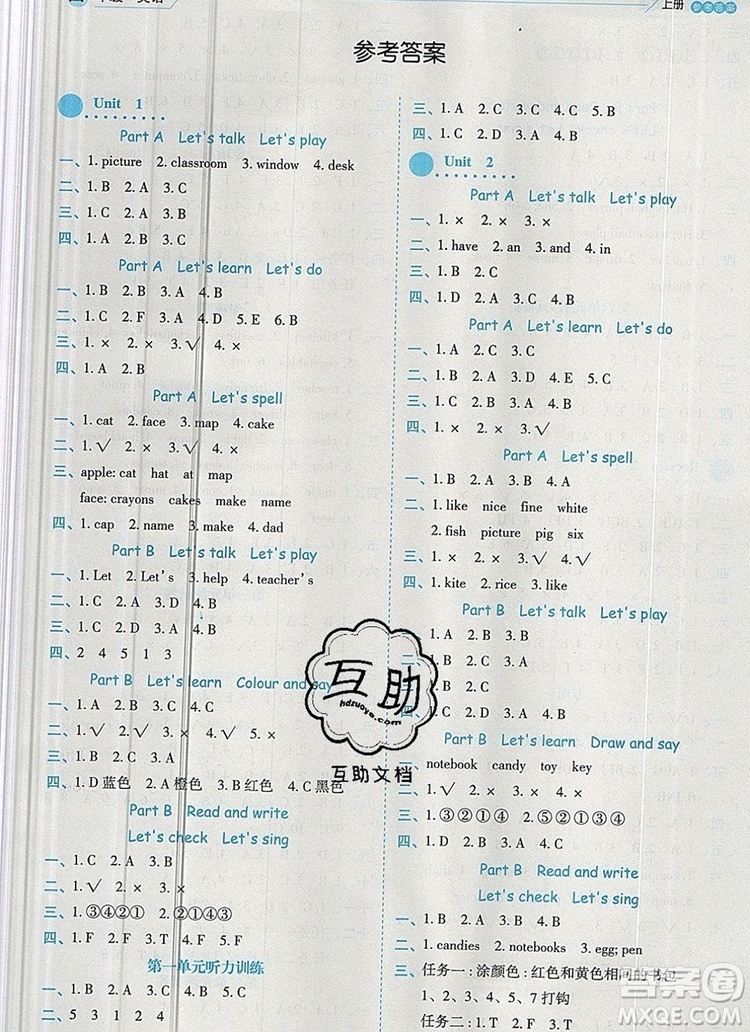 上册
参考答案
参考答案
Unit 1
Part A Let's talk Let's play
一、1. picture 2. classroom 3. window 4. desk
二、1. B 2. A 3. C
三、1. C 2. B 3. A
四、1. A 2. B 3. C
Part A Let's learn Let's do
一、1. B 2. D 3. A 4. B
二、1. C 2. F 3. A 4. D 5. E 6. B
三、1. × 2. × 3. √ 4. ×
四、1. A 2. B
Part A Let's spell
一、1. cat 2. face 3. map 4. cake
二、1. √ 2. × 3. √ 4. ×
三、apple: cat hat at map
face: crayons cakes make name
四、1. cap 2. name 3. make 4. dad
Part B Let's talk Let's play
一、1. Let 2. Let's 3. help 4. teacher's
二、1. C 2. A 3. D 4. B
三、1. B 2. D 3. A 4. B
四、2 4 5 1 3
Part B Let's learn Colour and say
一、1. B 2. B 3. A 4. C
二、1. √ 2. √ 3. × 4. ×
三、1. B 2. A 3. A
四、1. D 蓝色 2. A 橙色 3. B 红色 4. C 黑色
Part B Read and write
Let's check Let's sing
一、1. C 2. A 3. B
二、1. √ 2. × 3. ×
三、1. ③④②① 2. ①②④③
四、1. F 2. F 3. T 4. F
第一单元听力训练
一、1. B 2. B 3. A 4. B 5. C
二、5 3 1 2 4
三、1. A 2. C 3. C 4. C 5. B
四、1. C 2. D 3. A 4. B
Unit 2
Part A Let's talk Let's play
一、1. × 2. × 3. ×
二、1. have 2. an 3. and 4. in
三、1. B 2. A 3. C
四、1. D 2. A 3. C 4. B
Part A Let's learn Let's do
一、1. A 2. C 3. C
二、1. C 2. B 3. D 4. E 5. A
三、1. C 2. B 3. A 4. B
四、1. × 2. √ 3. √ 4. ×
Part A Let's spell
一、1. B 2. B 3. A
二、1. like nice fine white
2. fish picture pig six
三、1. × 2. × 3. √ 4. √
四、1. kite 2. rice 3. like
Part B Let's talk Let's play
一、1. A 2. B 3. B
二、1. C
三、
四、1. C 2. D 3. A 4. B
Part B Let's learn Draw and say
一、notebook candy toy key
二、1. B 2. C 3. A 4. B
三、1. ③②①④ 2. ⑤②①③④
四、1. C 2. B 3. A
Part B Read and write
Let's check Let's sing
一、1. B 2. A 3. B 4. B
二、1. candies 2. notebooks 3. egg; pen
三、任务一:涂颜色:红色和黄色相间的书包
1、2、3、4、5、7 打钩
任务二:
互助
hdzuoye.com
互助文档
答案圈
MXQE.COM